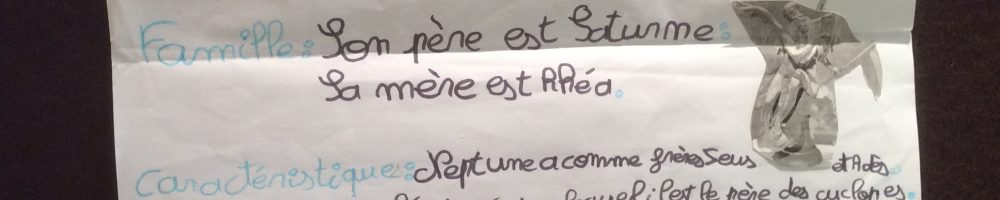 Famille: Son père est Saturne:
Sa mère est Rhéa.
Caractéristiques: Neptune a comme frères Seus et Adès.
il est le père des cyclopes.